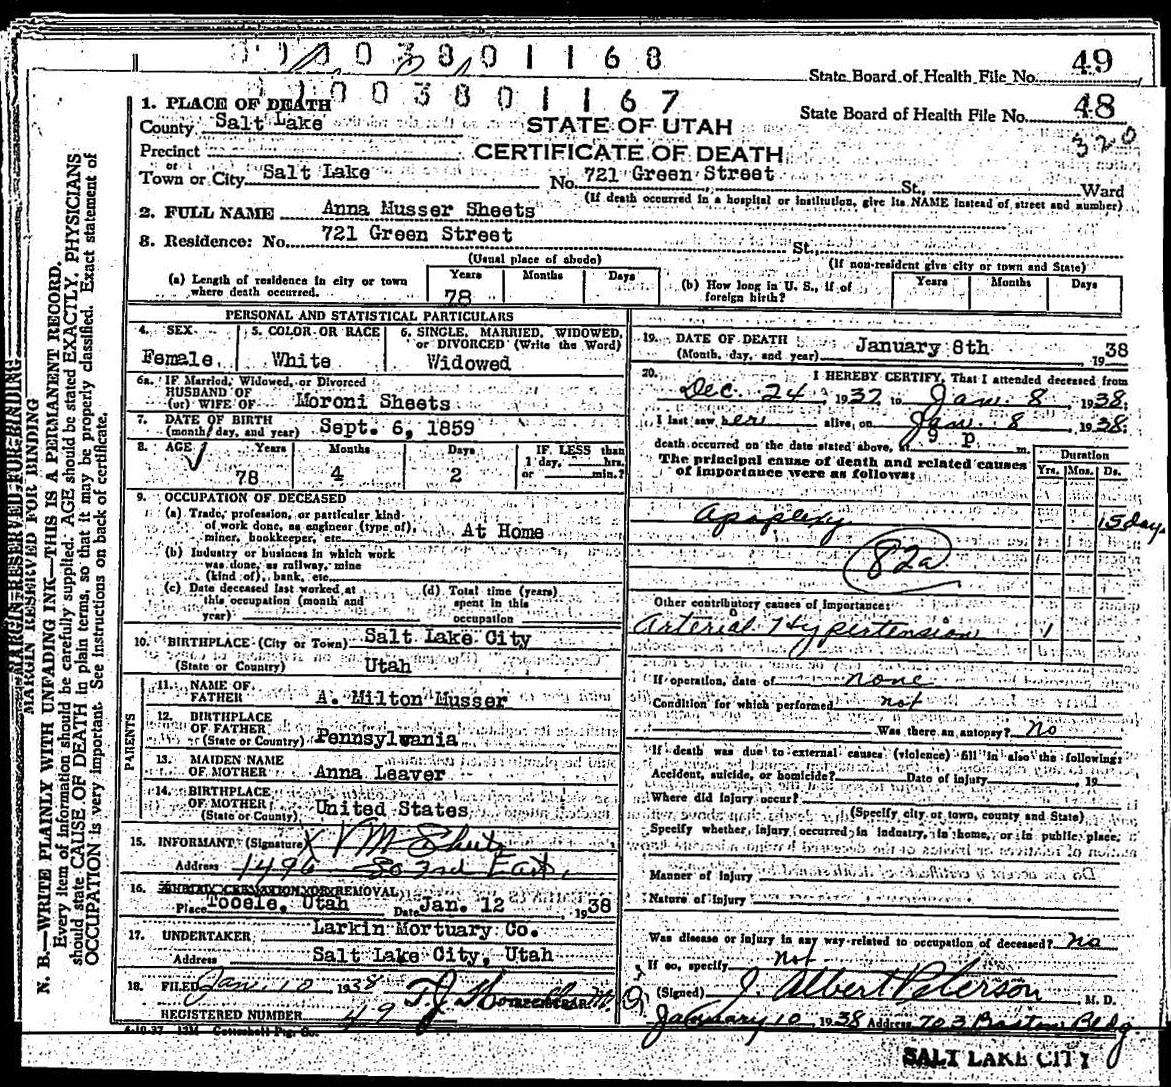 1003801168
49
State Board of Health File No.
1003801167
48
State Board of Health File No.
320
1. PLACE OF DEATH
County Salt Lake
STATE OF UTAH
CERTIFICATE OF DEATH
Precinct
or
Town or City Salt Lake No. 721 Green Street St., Ward
(If death occurred in a hospital or institution, give its NAME instead of street and number)
2. FULL NAME Anna Musser Sheets
3. Residence: No. 721 Green Street St.,
(Usual place of abode) (If non-resident give city or town and State)
(a) Length of residence in city or town where death occurred. Years 78 Months Days
(b) How long in U. S., if of foreign birth? Years Months Days
PERSONAL AND STATISTICAL PARTICULARS
4. SEX Female
5. COLOR OR RACE White
6. SINGLE, MARRIED, WIDOWED, or DIVORCED (Write the Word) Widowed
6a. IF Married, Widowed, or Divorced
HUSBAND OF
(or) WIFE OF Moroni Sheets
7. DATE OF BIRTH
(month, day, and year) Sept. 6, 1859
8. AGE Years 78 Months 4 Days 2 IF LESS than 1 day, hrs. or min.?
9. OCCUPATION OF DECEASED
(a) Trade, profession, or particular kind
of work done, as engineer (type of),
miner, bookkeeper, etc. At Home
(b) Industry or business in which work
was done, as railway, mine
(kind of), bank, etc.
(c) Date deceased last worked at this occupation (month and year)
(d) Total time (years) spent in this occupation
10. BIRTHPLACE (City or Town) Salt Lake City
(State or Country) Utah
PARENTS
11. NAME OF FATHER A. Milton Musser
12. BIRTHPLACE OF FATHER
(State or Country) Pennsylvania
13. MAIDEN NAME OF MOTHER Anna Leaver
14. BIRTHPLACE OF MOTHER
(State or County) United States
15. INFORMANT (Signature) X V M Sheets
Address 1496 So 3rd East,
16. BURIAL CREMATION OR REMOVAL
Place Tooele, Utah Date Jan. 12 1938
17. UNDERTAKER Larkin Mortuary Co.
Address Salt Lake City, Utah
18. FILED Jan 10 1938
REGISTERED NUMBER 49
4-10-37 13M
19. DATE OF DEATH
(Month, day, and year) January 8th 1938
20. I HEREBY CERTIFY, That I attended deceased from
Dec. 24 1937 to Jan. 8 1938;
I last saw her alive on Jan. 8 1938;
death occurred on the date stated above, at 9 p m.
The principal cause of death and related causes
of importance were as follows:
Duration
Yrs. Mos. Ds.
Apoplexy 15 day
82a
Other contributory causes of importance:
Arterial Hypertension 1
If operation, date of none
Condition for which performed not
Was there an autopsy? No
If death was due to external causes (violence) fill in also the following:
Accident, suicide, or homicide? Date of injury 19
Where did injury occur?
(Specify city or town, county and State)
Specify whether injury occurred in industry, in home, or in public place.
Manner of injury
Nature of injury
Was disease or injury in any way related to occupation of deceased? No
If so, specify not
(Signed) J. Albert Peterson M. D.
January 10 1938 Address 703 Boston Bldg.
SALT LAKE CITY
MARGIN RESERVED FOR BINDING
MARGIN RESERVED FOR BINDING
N. B.—WRITE PLAINLY WITH UNFADING INK—THIS IS A PERMANENT RECORD.
Every item of information should be carefully supplied. AGE should be stated EXACTLY. PHYSICIANS
should state CAUSE OF DEATH in plain terms, so that it may be properly classified. Exact statement of
OCCUPATION is very important. See instructions on back of certificate.